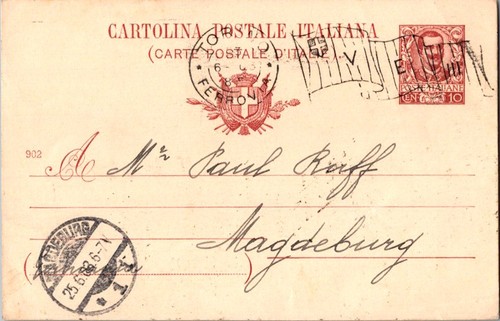 CARTOLINA POSTALE ITALIANA
(CARTE POSTALE D'ITALIE)
FERROVIA
V E III
CENT. 10
902
A Mr Paul Ruff
Magdeburg
MAGDEBURG
25.6.03.6-7
* 1